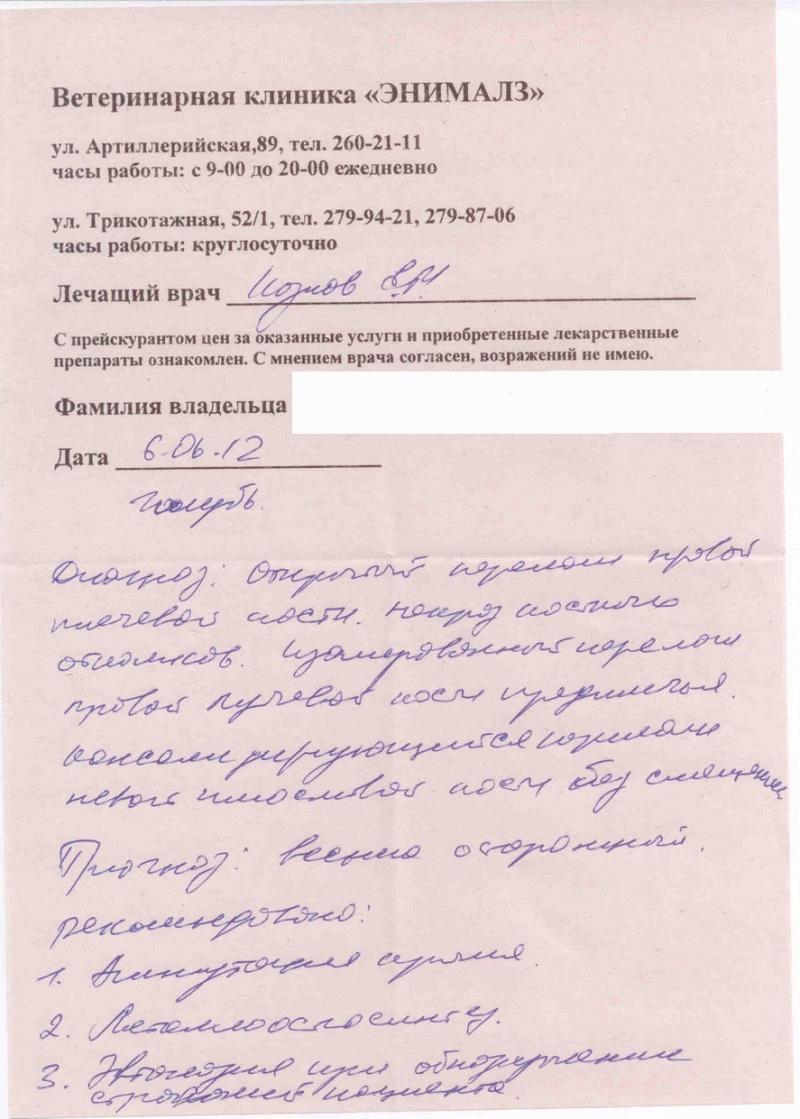 Ветеринарная клиника «ЭНИМАЛЗ»
ул. Артиллерийская,89, тел. 260-21-11
часы работы: с 9-00 до 20-00 ежедневно
ул. Трикотажная, 52/1, тел. 279-94-21, 279-87-06
часы работы: круглосуточно
Лечащий врач Козлов
С прейскурантом цен за оказанные услуги и приобретенные лекарственные
препараты ознакомлен. С мнением врача согласен, возражений не имею.
Фамилия владельца
Дата 6.06.12
Голубь.
Диагноз: Открытый перелом правой
плечевой кости. Некроз костных
отломков. Изолированный перелом
правой лучевой кости предплечья.
Консолидирующийся перелом
левой кости без смещения
Прогноз: весьма осторожный.
Рекомендовано:
1. Ампутация крыла.
2. Металлоостеосинтез.
3. Эвтаназия при обнаружении
страданий пациента.